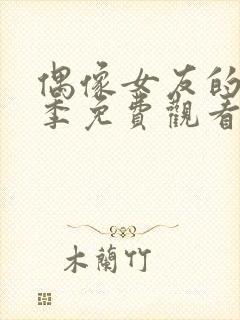 偶像女友的
季免費觀看
木蘭竹